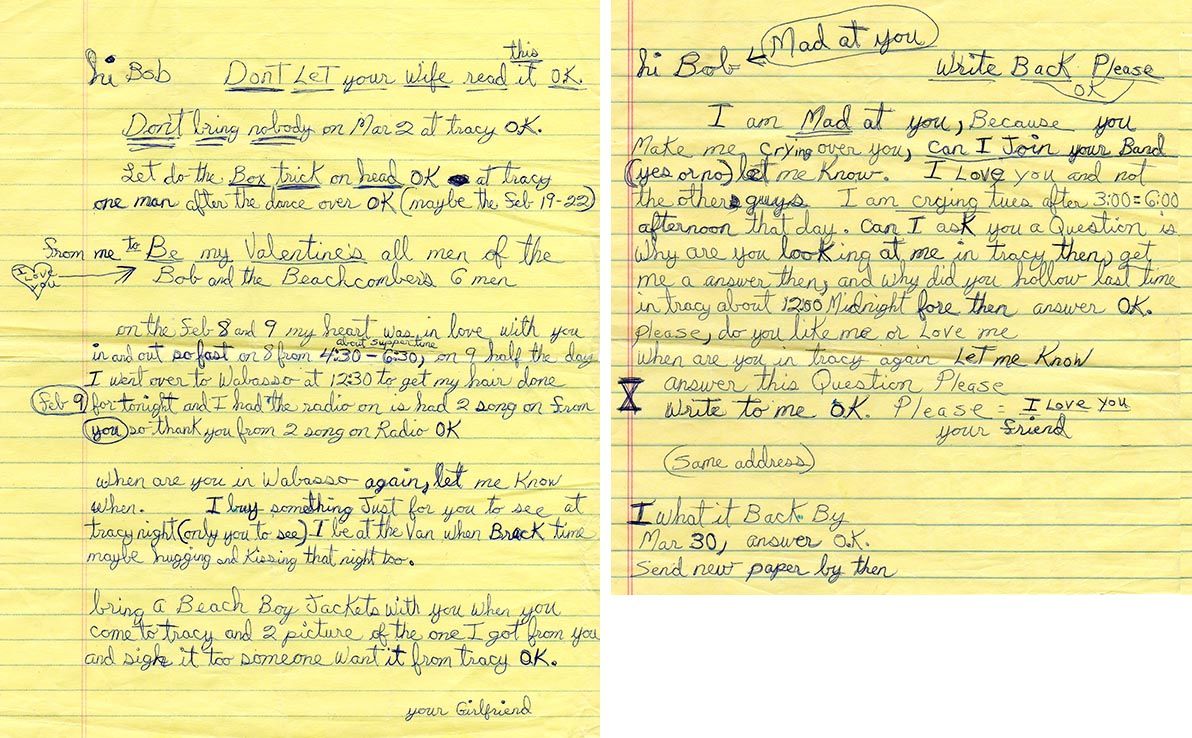 this
hi Bob Don't Let your Wife read it OK.
Don't bring nobody on Mar 2 at tracy OK.
Let do the Box trick on head OK at tracy
one man after the dance over OK (maybe the Feb 19-22)
from me to Be my Valentine's all men of the
I Love you
Bob and the Beachcombers 6 men
on the Feb 8 and 9 my heart was in love with you
about suppertime
in and out so fast on 8 from 4:30 - 6:30, on 9 half the day
I went over to Wabasso at 12:30 to get my hair done
Feb 9 for tonight and I had the radio on is had 2 song on from
you so thank you from 2 song on Radio OK
when are you in Wabasso again, let me Know
when. I buy something Just for you to see at
tracy night (only you to see) I be at the Van when Brack time
maybe hugging and Kissing that night too.
bring a Beach Boy Jackets with you when you
come to tracy and 2 picture of the one I got from you
and sign it too someone want it from tracy OK.
your Girlfriend
Mad at you
hi Bob
Write Back Please
OK
I am Mad at you, Because you
Make me crying over you, can I Join your Band
(yes or no) let me Know. I Love you and not
the others guys. I am crying tues after 3:00=6:00
afternoon that day. Can I ask you a Question is
why are you looking at me in tracy then, get
me a answer then, and why did you hollow last time
in tracy about 12:00 Midnight fore then answer OK.
please, do you like me or Love me
when are you in tracy again Let me Know
answer this Question Please
Write to me OK. Please = I Love you
your friend
(Same address)
I what it Back By
Mar 30, answer O.K.
Send new paper by then